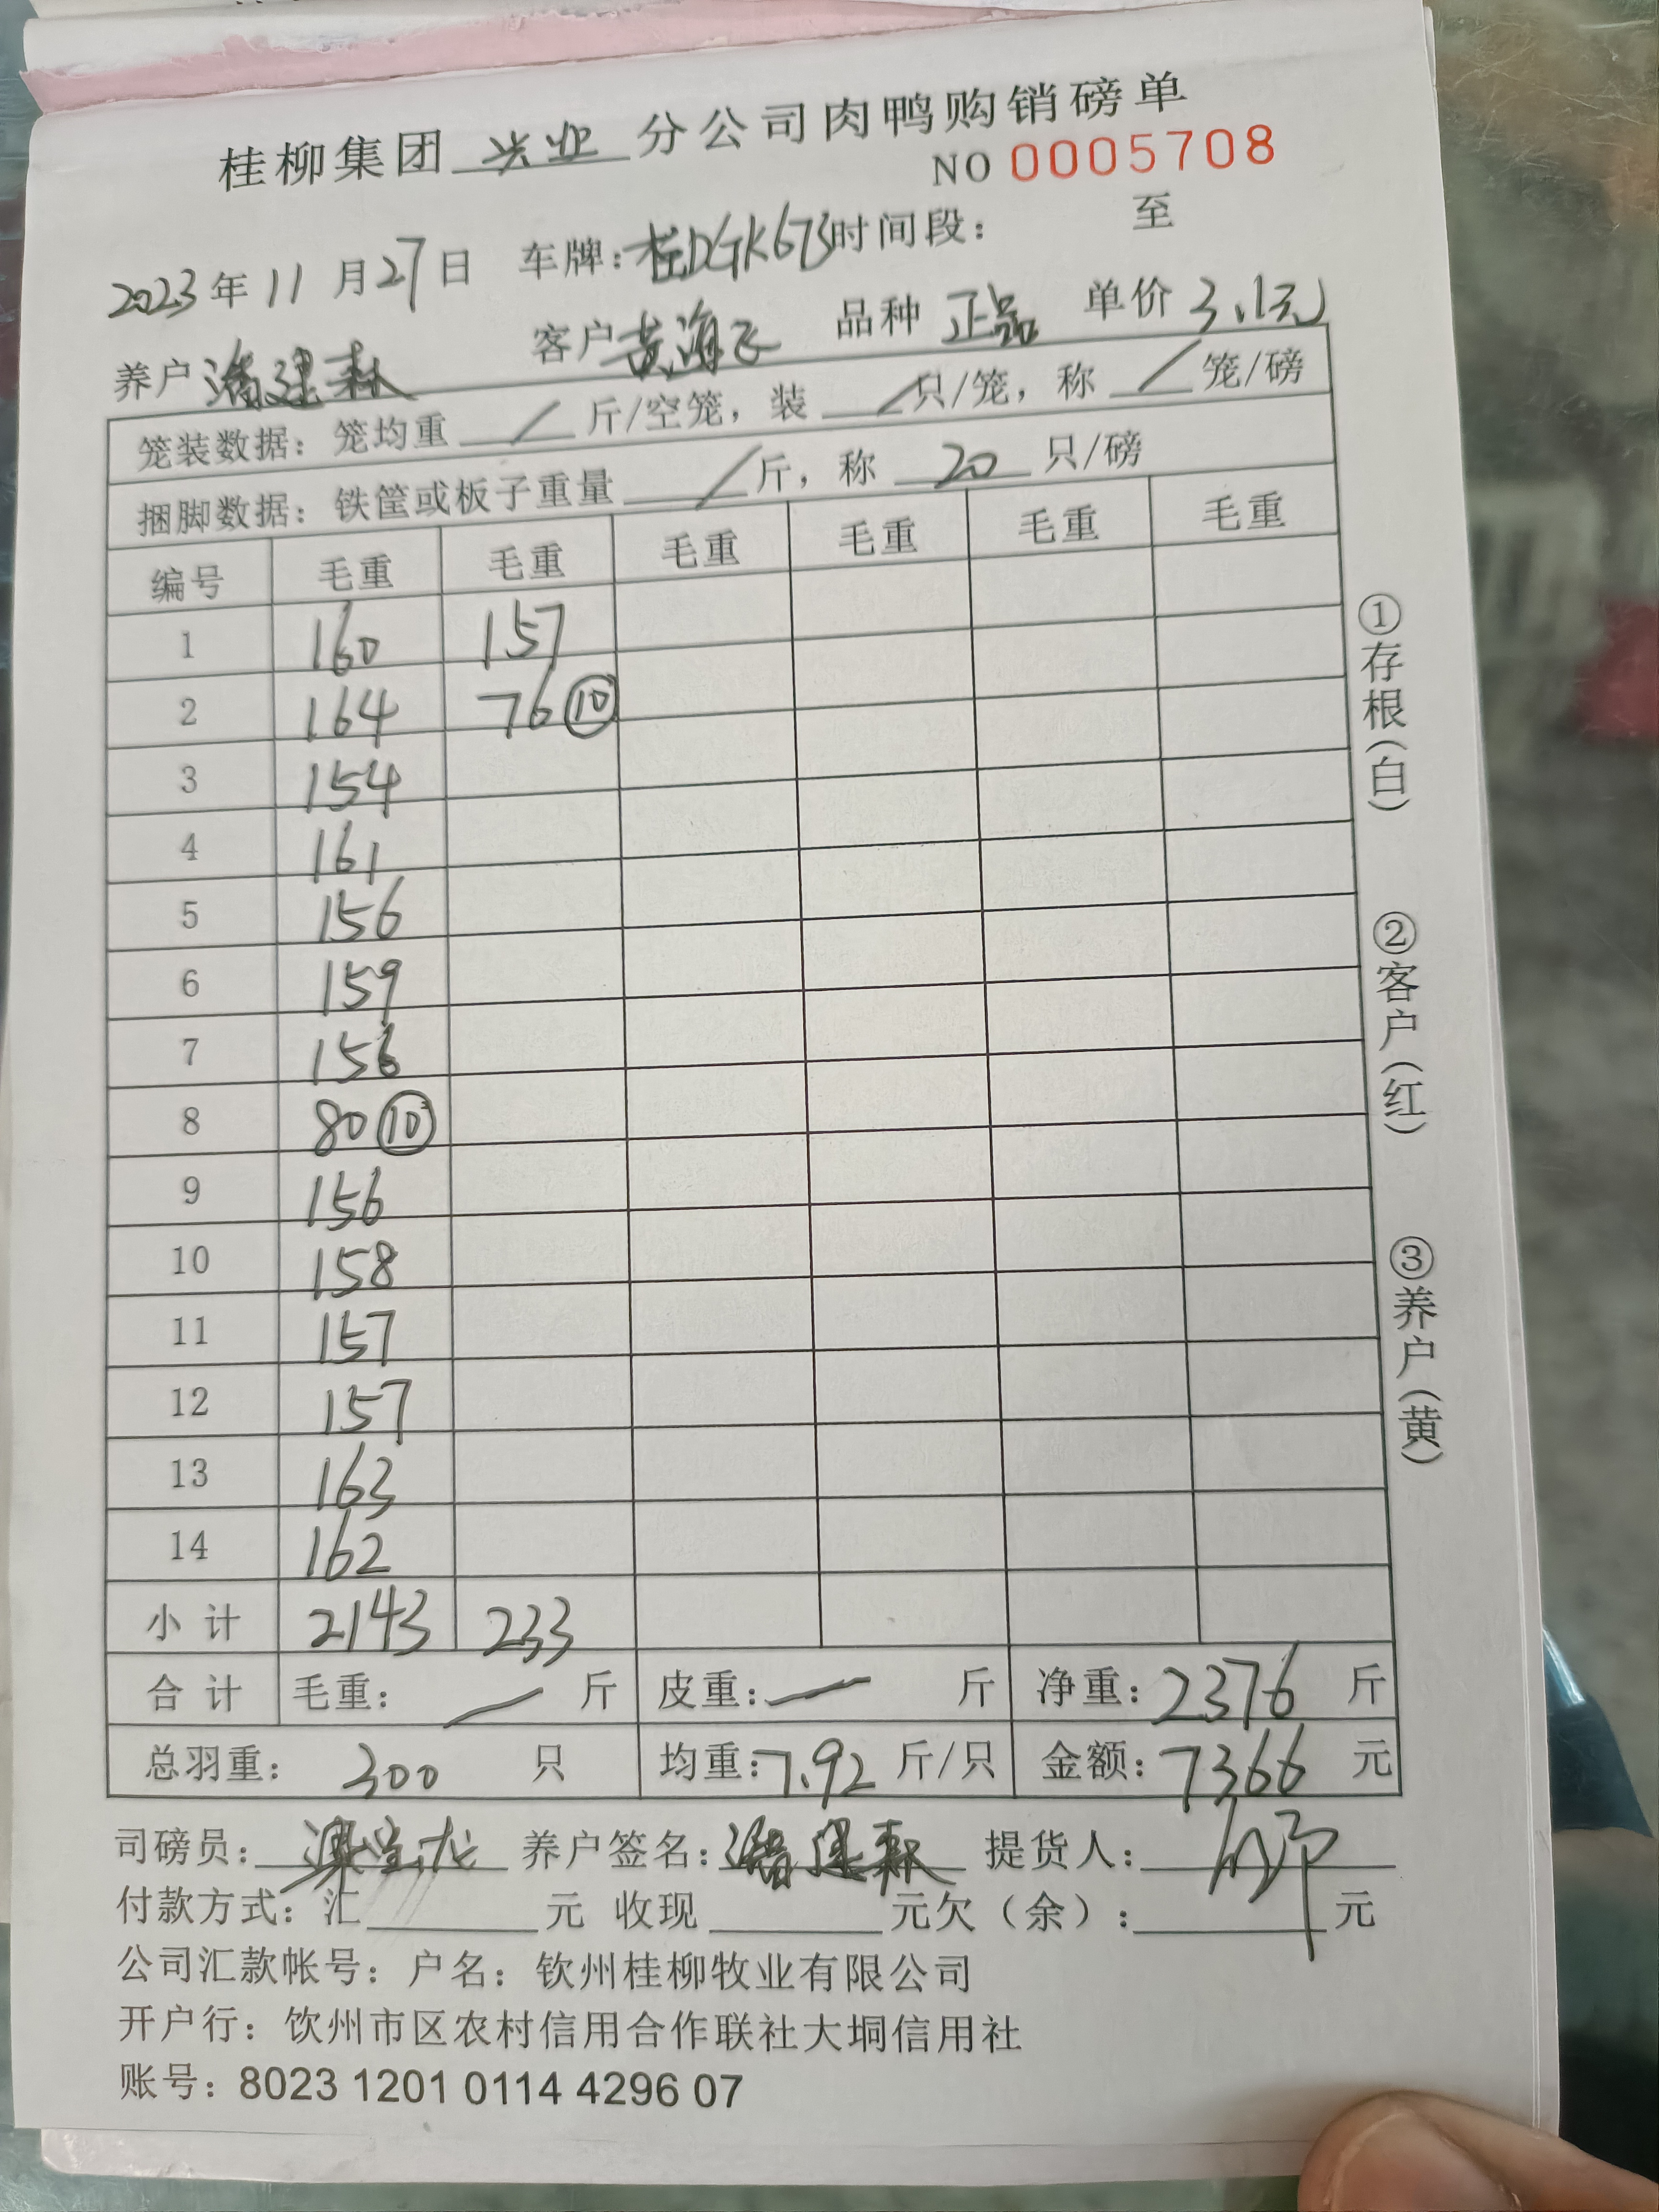 桂柳集团 兴业 分公司肉鸭购销磅单
NO 0005708
2023年11月27日 车牌:桂DGK673时间段: 至
养户 潘建森 客户 黄海飞 品种 正品 单价 3.1元
笼装数据:笼均重 / 斤/空笼,装 / 只/笼,称 / 笼/磅
捆脚数据:铁筐或板子重量 / 斤,称 20 只/磅
编号 毛重 毛重 毛重 毛重 毛重 毛重
1 160 157
2 164 76 ⑩
3 154
4 161
5 156
6 159
7 156
8 80 ⑩
9 156
10 158
11 157
12 157
13 163
14 162
小计 2143 233
合计 毛重: — 斤 皮重: — 斤 净重: 2376 斤
总羽重: 300 只 均重: 7.92 斤/只 金额: 7366 元
司磅员: 养户签名: 潘建森 提货人:
付款方式:汇 元 收现 元欠(余): 元
公司汇款帐号:户名:钦州桂柳牧业有限公司
开户行:饮州市区农村信用合作联社大垌信用社
账号:8023 1201 0114 4296 07
①存根(白)
②客户(红)
③养户(黄)